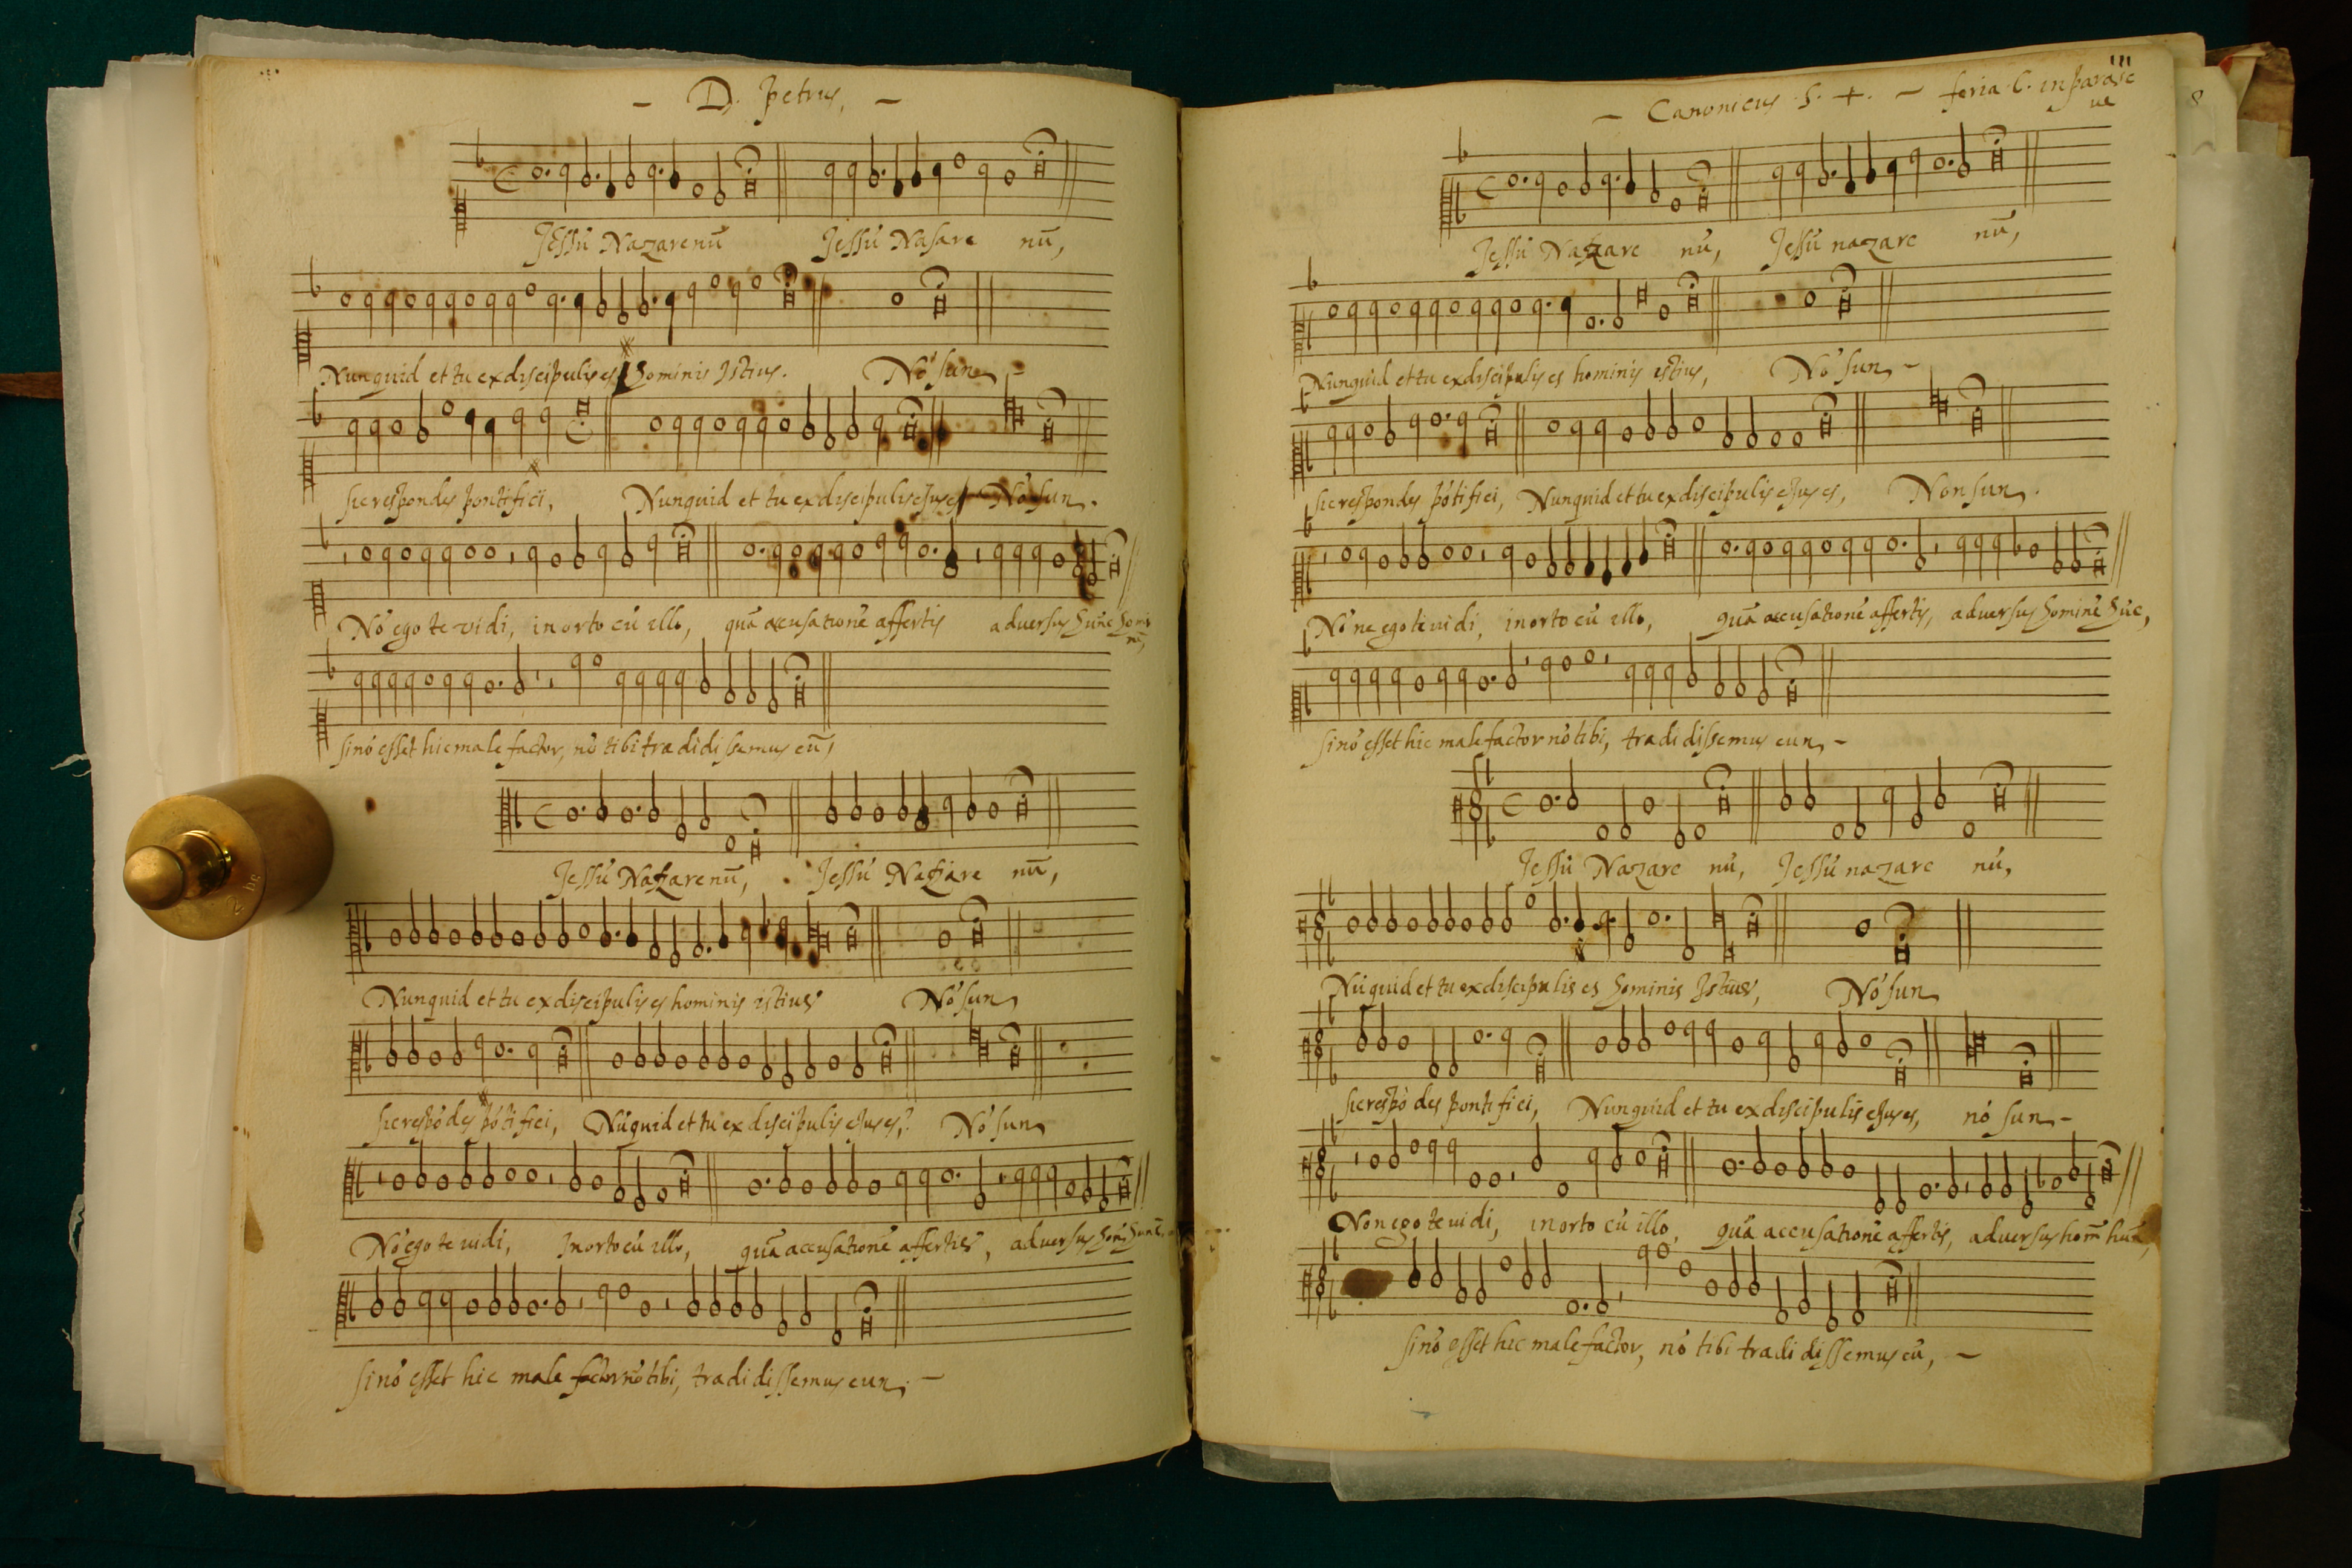 – D. petrus, –
Jessu Nazarenū Jessu Nasare nū,
Nunquid et tu ex discipulis es hominis Istius. Nō sun –
sic respondes pontifici, Nunquid et tu ex discipulis ejus es Nō sun.
Nō ego te vidi, in orto cū illo, quā accusationē affertis adversus hūnc homi
nē,
si nō esset hic male factor, nō tibi tradidissemus eū,
Jessu Nazarenū, Jessu Nazare nū,
Nunquid et tu ex discipulis es hominis istius Nō sun
sic respōdes pōtifici, Nūquid et tu ex discipulis ejus es,? Nō sun
Nō ego te uidi, In orto cū illo, quā accusationē affertis, adversus
si nō esset hic male factor nō tibi, tradidissemus eun, –
– Canonicus S. +. – feria 6. in parasce
ue
8
Jessu Nazare nū, Jessu nazare nū,
Nunquid et tu ex discipulis es hominis istius, Nō sun –
sic respondes pōtifici, Nunquid et tu ex discipulis ejus es, Non sun.
Nō ne ego te uidi, in orto cū illo, quā accusationē affertis, adversus hominē hūc,
si nō esset hic male factor nō tibi, tradidissemus eun, –
Jessu Nazare nū, Jessu nazare nū,
Nūquid et tu ex discipulis es hominis Istius, Nō sun
sic respō des pontifici, Nunquid et tu ex discipulis ejus es, nō sun –
Non ego te uidi, in orto cū illo, quā accusationē affertis, adversus hom̄ hūc,
si nō esset hic male factor, nō tibi tradidissemus eū, –